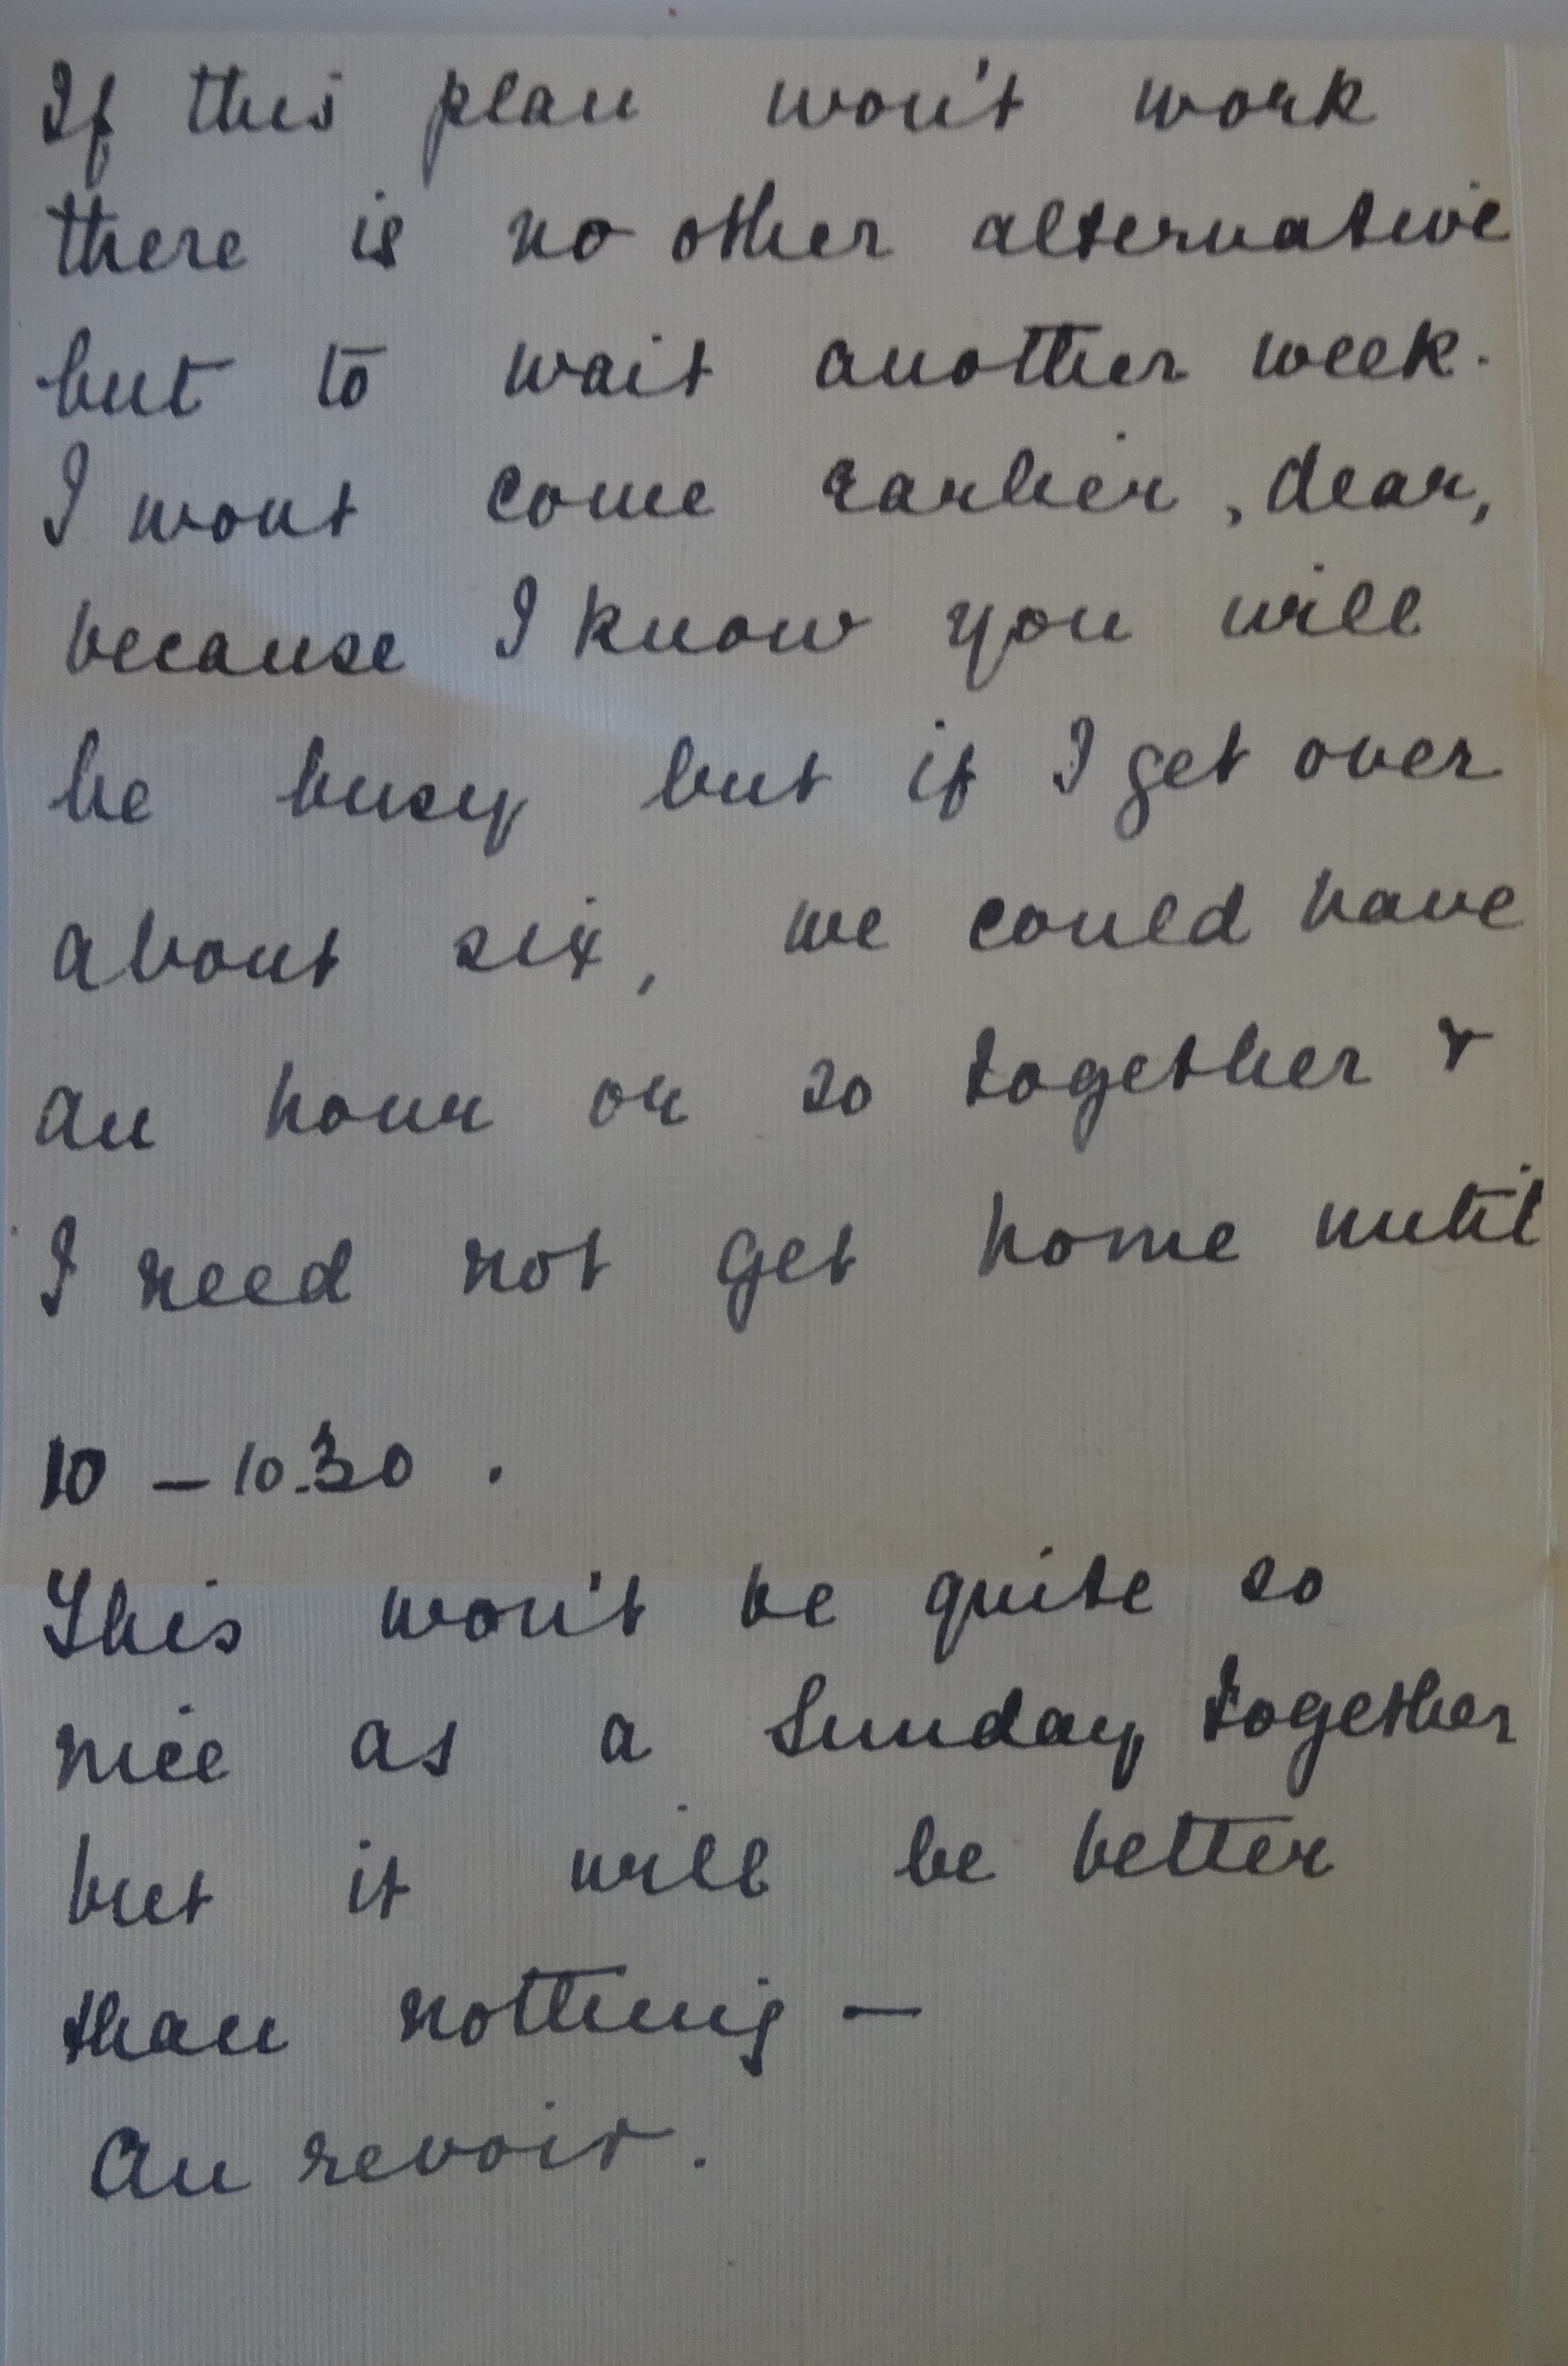 If this plan won't work
there is no other alternative
but to wait another week.
I wont come earlier, dear,
because I know you will
be busy but if I get over
about six, we could have
an hour or so together &
I need not get home until
10 – 10.30 .
This won't be quite so
nice as a Sunday together
but it will be better
than nothing —
Au revoir.